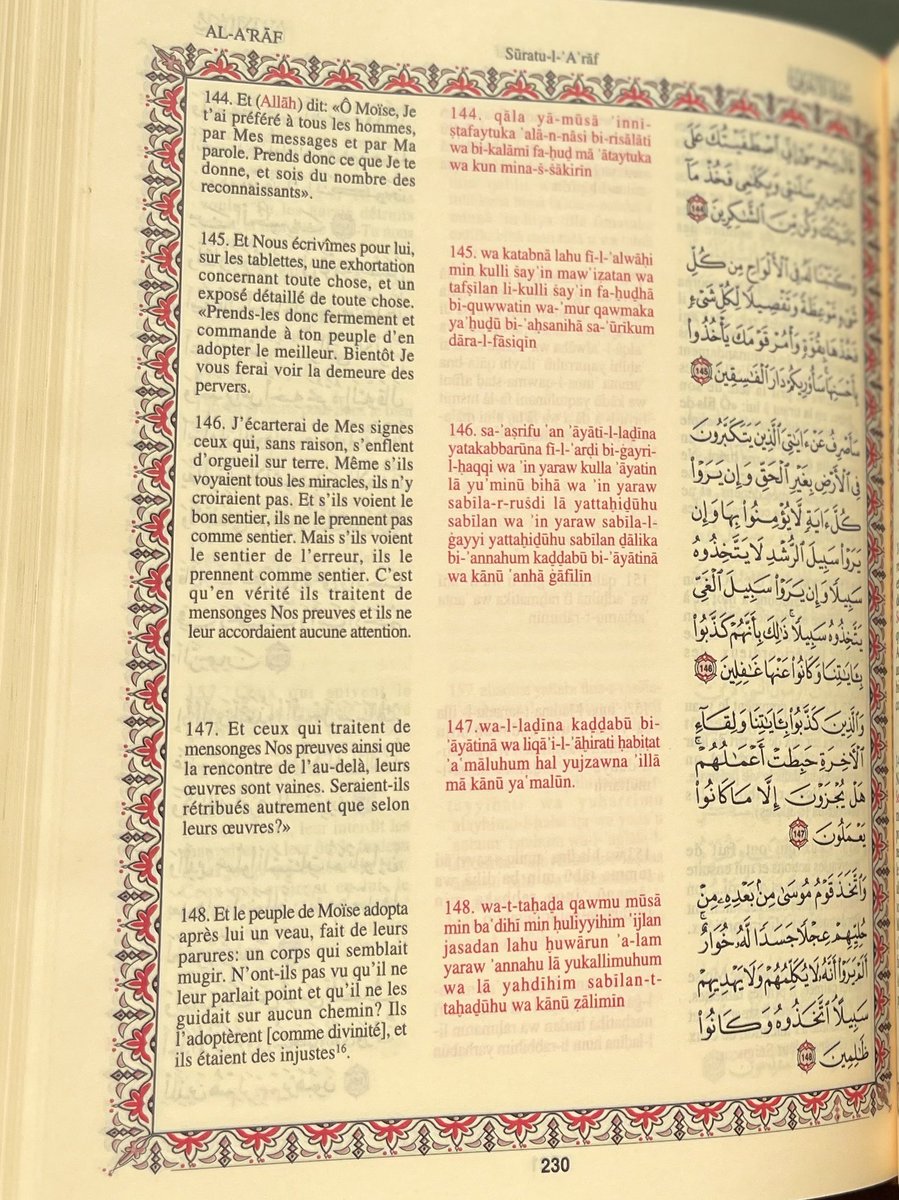 AL-A'RĀF
Sūratu-l-ʾAʿrāf
144. Et (Allāh) dit: «Ô Moïse, Je
t'ai préféré à tous les hommes,
par Mes messages et par Ma
parole. Prends donc ce que Je te
donne, et sois du nombre des
reconnaissants».
145. Et Nous écrivîmes pour lui,
sur les tablettes, une exhortation
concernant toute chose, et un
exposé détaillé de toute chose.
«Prends-les donc fermement et
commande à ton peuple d'en
adopter le meilleur. Bientôt Je
vous ferai voir la demeure des
pervers.
146. J'écarterai de Mes signes
ceux qui, sans raison, s'enflent
d'orgueil sur terre. Même s'ils
voyaient tous les miracles, ils n'y
croiraient pas. Et s'ils voient le
bon sentier, ils ne le prennent pas
comme sentier. Mais s'ils voient
le sentier de l'erreur, ils le
prennent comme sentier. C'est
qu'en vérité ils traitent de
mensonges Nos preuves et ils ne
leur accordaient aucune attention.
147. Et ceux qui traitent de
mensonges Nos preuves ainsi que
la rencontre de l'au-delà, leurs
œuvres sont vaines. Seraient-ils
rétribués autrement que selon
leurs œuvres?»
148. Et le peuple de Moïse adopta
après lui un veau, fait de leurs
parures: un corps qui semblait
mugir. N'ont-ils pas vu qu'il ne
leur parlait point et qu'il ne les
guidait sur aucun chemin? Ils
l'adoptèrent [comme divinité], et
ils étaient des injustes¹⁶.
144. qāla yā-mūsā ʾinni-
ṣṭafaytuka ʿalā-n-nāsi bi-risālāti
wa bi-kalāmi fa-ḫuḏ mā ʾātaytuka
wa kun mina-š-šākirin
145. wa katabnā lahu fi-l-ʾalwāḥi
min kulli šayʾin mawʿiẓatan wa
tafṣilan li-kulli šayʾin fa-ḫuḏhā
bi-quwwatin wa-ʾmur qawmaka
yaʾḫuḏū bi-ʾaḥsanihā sa-ʾūrikum
dāra-l-fāsiqin
146. sa-ʾaṣrifu ʿan ʾāyāti-l-laḏīna
yatakabbarūna fi-l-ʾarḍi bi-ġayri-
l-ḥaqqi wa ʾin yaraw kulla ʾāyatin
lā yuʾminū bihā wa ʾin yaraw
sabīla-r-rušdi lā yattaḫiḏūhu
sabīlan wa ʾin yaraw sabīla-l-
ġayyi yattaḫiḏūhu sabīlan ḏālika
bi-ʾannahum kaḏḏabū bi-ʾāyātinā
wa kānū ʿanhā ġāfilīn
147.wa-l-laḏīna kaḏḏabū bi-
ʾāyātinā wa liqāʾi-l-ʾāḫirati ḥabiṭat
ʾaʿmāluhum hal yujzawna ʾillā
mā kānū yaʿmalūn.
148. wa-t-taḫaḏa qawmu mūsā
min baʿdihī min ḥuliyyihim ʿijlan
jasadan lahu ḫuwārun ʾa-lam
yaraw ʾannahu lā yukallimuhum
wa lā yahdihim sabīlan-t-
taḫaḏūhu wa kānū ẓālimin
ٱصْطَفَيْتُكَ عَلَى
ٱلنَّاسِ بِرِسَـٰلَـٰتِى وَبِكَلَـٰمِى فَخُذْ مَآ
ءَاتَيْتُكَ وَكُن مِّنَ ٱلشَّـٰكِرِينَ ١٤٤
وَكَتَبْنَا لَهُۥ فِى ٱلْأَلْوَاحِ مِن كُلِّ
شَىْءٍ مَّوْعِظَةً وَتَفْصِيلًا لِّكُلِّ شَىْءٍ
فَخُذْهَا بِقُوَّةٍ وَأْمُرْ قَوْمَكَ يَأْخُذُوا۟
بِأَحْسَنِهَا سَأُو۟رِيكُمْ دَارَ ٱلْفَـٰسِقِينَ ١٤٥
سَأَصْرِفُ عَنْ ءَايَـٰتِىَ ٱلَّذِينَ يَتَكَبَّرُونَ
فِى ٱلْأَرْضِ بِغَيْرِ ٱلْحَقِّ وَإِن يَرَوْا۟
كُلَّ ءَايَةٍ لَّا يُؤْمِنُوا۟ بِهَا وَإِن
يَرَوْا۟ سَبِيلَ ٱلرُّشْدِ لَا يَتَّخِذُوهُ
سَبِيلًا وَإِن يَرَوْا۟ سَبِيلَ ٱلْغَىِّ
يَتَّخِذُوهُ سَبِيلًا ۚ ذَٰلِكَ بِأَنَّهُمْ كَذَّبُوا۟
بِـَٔايَـٰتِنَا وَكَانُوا۟ عَنْهَا غَـٰفِلِينَ ١٤٦
وَٱلَّذِينَ كَذَّبُوا۟ بِـَٔايَـٰتِنَا وَلِقَآءِ
ٱلْـَٔاخِرَةِ حَبِطَتْ أَعْمَـٰلُهُمْ ۚ
هَلْ يُجْزَوْنَ إِلَّا مَا كَانُوا۟
يَعْمَلُونَ ١٤٧
وَٱتَّخَذَ قَوْمُ مُوسَىٰ مِنۢ بَعْدِهِۦ مِنْ
حُلِيِّهِمْ عِجْلًا جَسَدًا لَّهُۥ خُوَارٌ ۚ
أَلَمْ يَرَوْا۟ أَنَّهُۥ لَا يُكَلِّمُهُمْ وَلَا يَهْدِيهِمْ
سَبِيلًا ۘ ٱتَّخَذُوهُ وَكَانُوا۟
ظَـٰلِمِينَ ١٤٨
230